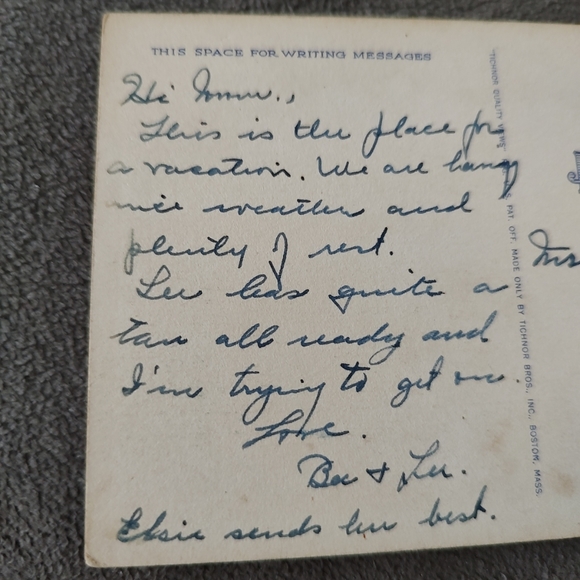 THIS SPACE FOR WRITING MESSAGES
Hi
This is the place for
a vacation. We are having
nice weather and
plenty of rest.
Lee has quite a
tan all ready and
I'm trying to get one.
Love.
Bea & Lee.
Elsie sends her best.
Mrs
PAT. OFF. MADE ONLY BY TICHNOR BROS., INC., BOSTON, MASS.